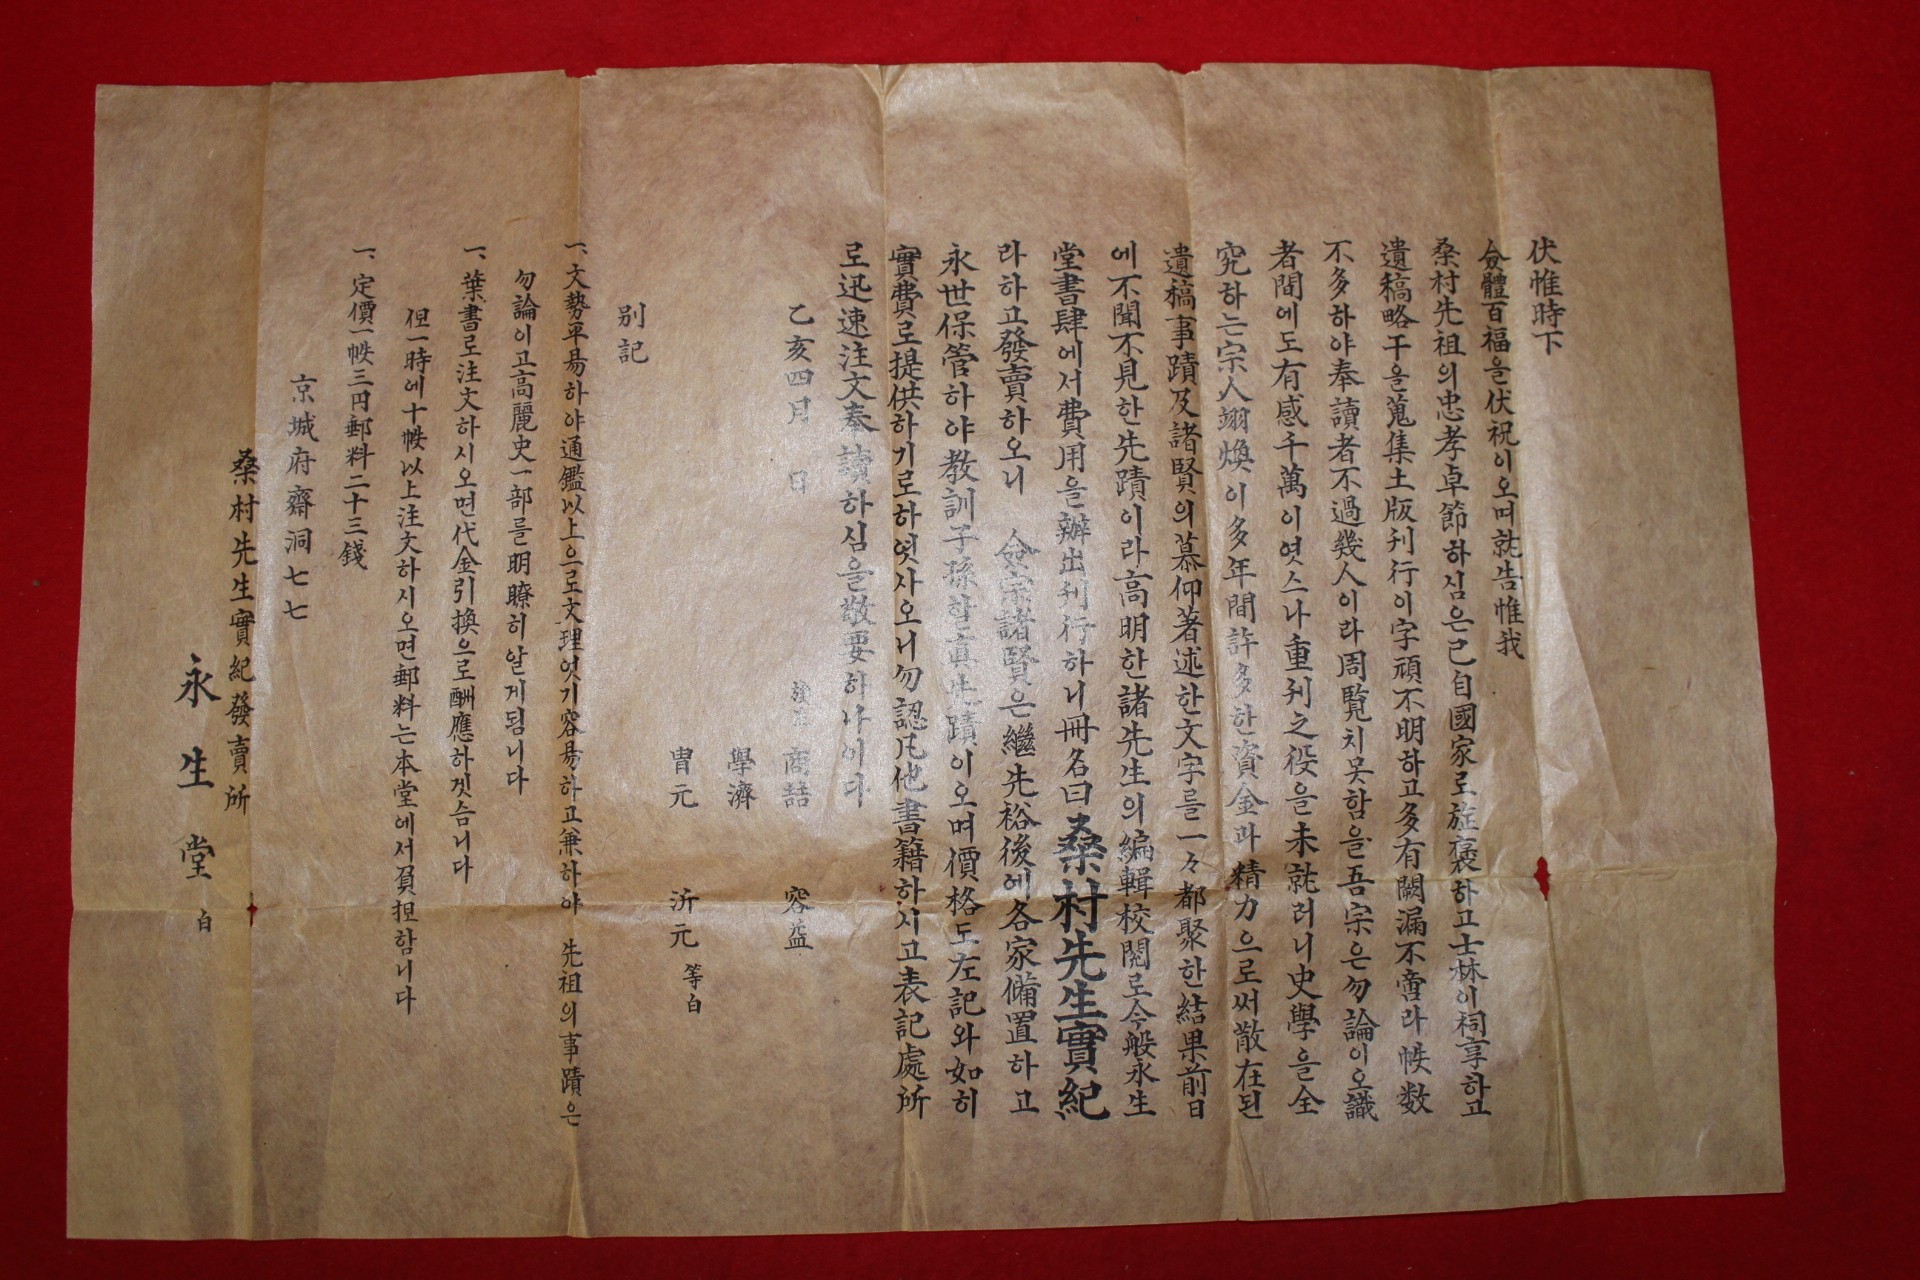 伏惟時下
僉體百福을伏祝이오며就告惟我
桑村先祖의忠孝卓節하심은已自國家로旌褒하고士林이祠享하고
遺稿略干을蒐集土版刊行이字頑不明하고多有闕漏不啻라帙数
不多하야奉讀者不過幾人이라周覧치못함을吾宗은勿論이오識
者間에도有感千萬이엿스나重刊之役을未就러니史學을全
究하는宗人翊煥이多年間許多한資金과精力으로써散在된
遺稿事蹟及諸賢의慕仰著述한文字를一々都聚한結果前日
에不聞不見한先蹟이라高明한諸先生의編輯校閱로今般永生
堂書肆에서費用을辦出刊行하니冊名曰桑村先生實紀
라하고發賣하오니 僉宗諸賢은繼先裕後에各家備置하고
永世保管하야教訓子孫할真先蹟이오며價格도左記와如히
實費로提供하기로하엿사오니勿認凡他書籍하시고表記處所
로迅速注文奉讀하심을敬要하나이다
乙亥四月 日 商喆 容益
學濟
冑元 沂元 等白
別記
一、文勢平易하야通鑑以上으로文理엇기容易하고兼하야 先祖의事蹟은
勿論이고高麗史一部를明瞭히알게됨니다
一、葉書로注文하시오면代金引換으로酬應하겟슴니다
但一時에十帙以上注文하시오면郵料는本堂에서負担함니다
一、定價一帙三円郵料二十三錢
京城府齋洞七七
桑村先生實紀發賣所
永生堂 白